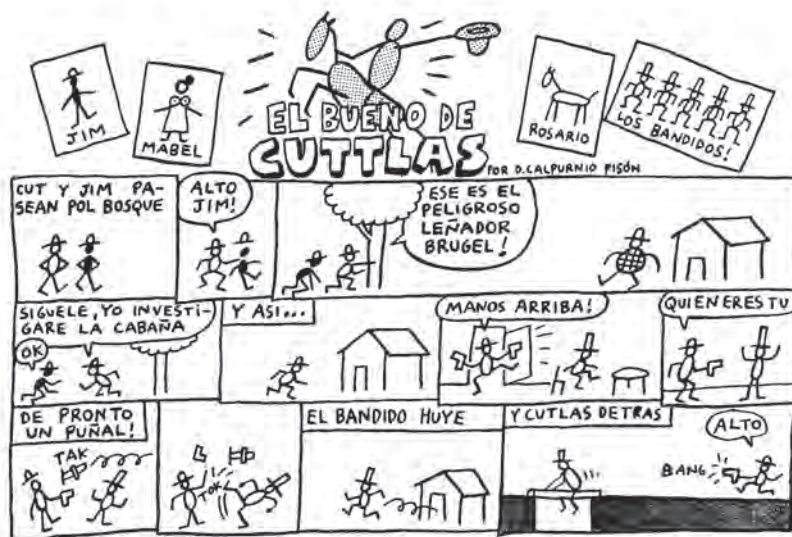 JIM
MABEL
EL BUENO DE
CUTTLAS
POR D. CALPURNIO PISÓN
ROSARIO
LOS BANDIDOS!
CUT Y JIM PA-
SEAN POL BOSQUE
ALTO
JIM!
ESE ES EL
PELIGROSO
LEÑADOR
BRUGEL!
SIGUELE, YO INVESTI-
GARE LA CABAÑA
OK
Y ASI...
MANOS ARRIBA!
QUIEN ERES TU
DE PRONTO
UN PUÑAL!
TAK
TOK
EL BANDIDO HUYE
Y CUTLAS DETRAS
ALTO
BANG